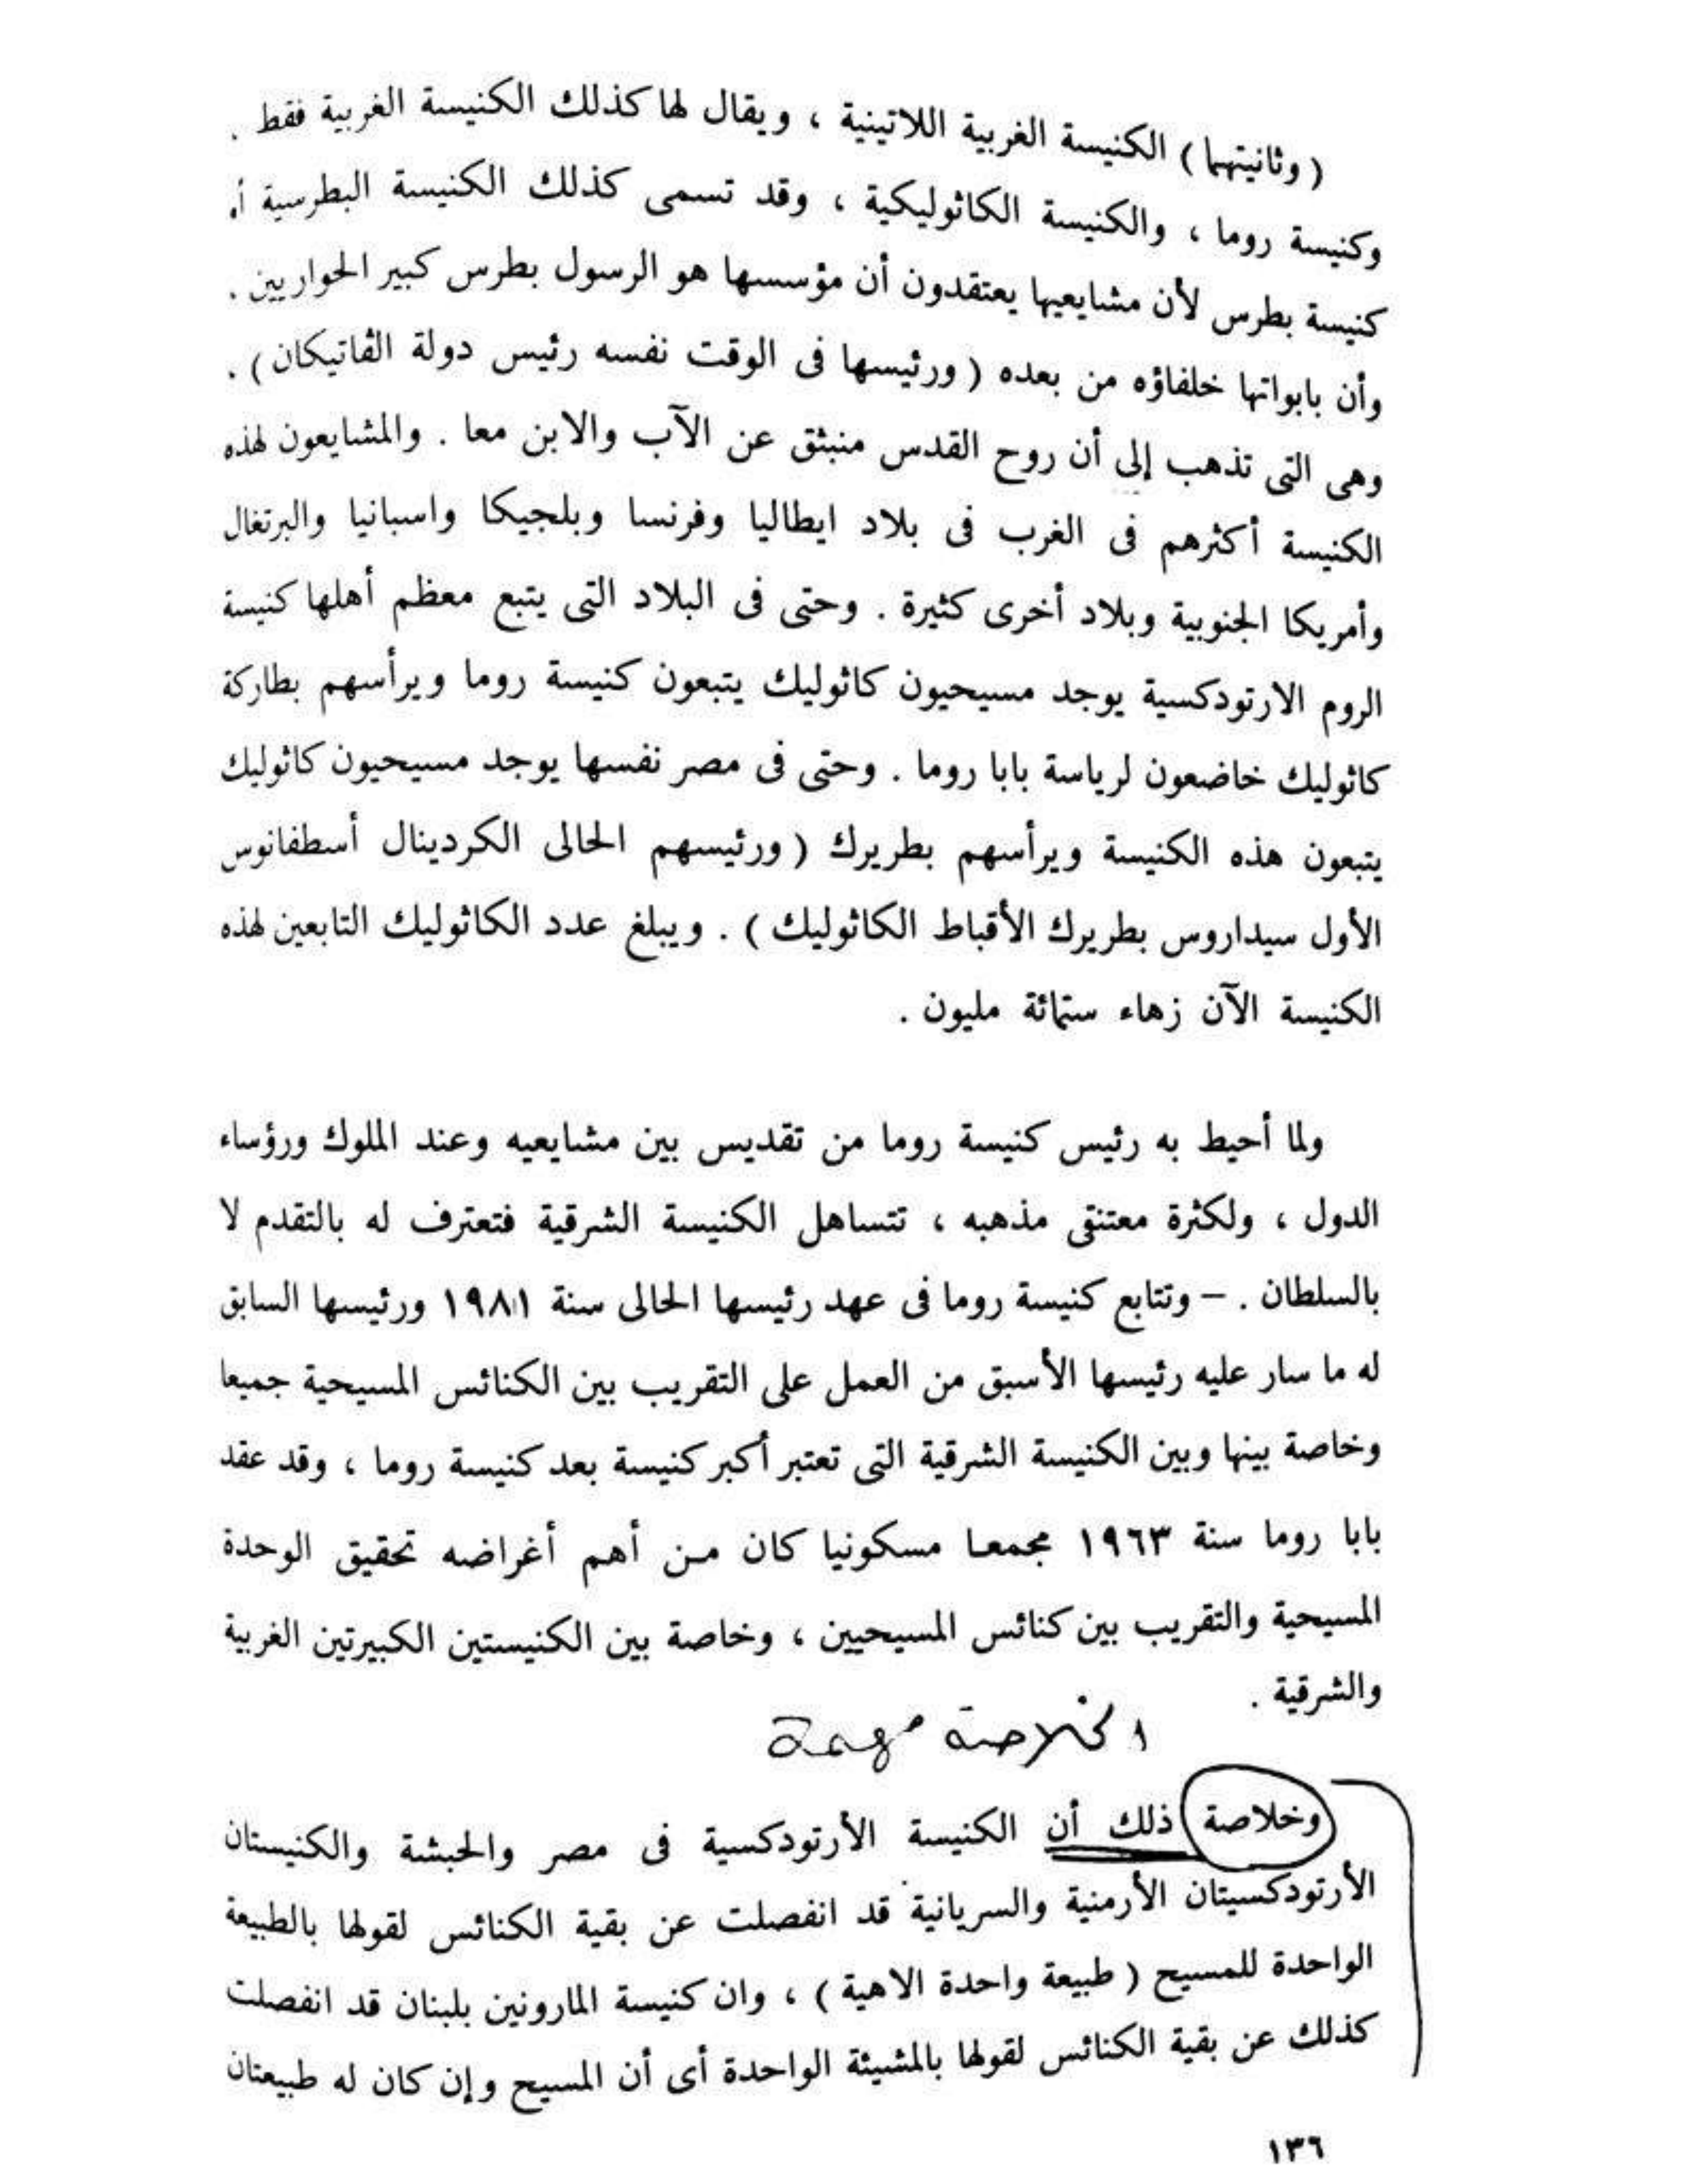 ( وثانيتهما ) الكنيسة الغربية اللاتينية ، ويقال لها كذلك الكنيسة الغربية فقط .
وكنيسة روما ، والكنيسة الكاثوليكية ، وقد تسمى كذلك الكنيسة البطرسية أو
كنيسة بطرس لأن مشايعيها يعتقدون أن مؤسسها هو الرسول بطرس كبير الحواريين .
وأن بابواتها خلفاؤه من بعده ( ورئيسها فى الوقت نفسه رئيس دولة الڤاتيكان ) .
وهى التى تذهب إلى أن روح القدس منبثق عن الآب والابن معا . والمشايعون لهذه
الكنيسة أكثرهم فى الغرب فى بلاد ايطاليا وفرنسا وبلجيكا واسبانيا والبرتغال
وأمريكا الجنوبية وبلاد أخرى كثيرة . وحتى فى البلاد التى يتبع معظم أهلها كنيسة
الروم الارتودكسية يوجد مسيحيون كاثوليك يتبعون كنيسة روما ويرأسهم بطاركة
كاثوليك خاضعون لرياسة بابا روما . وحتى فى مصر نفسها يوجد مسيحيون كاثوليك
يتبعون هذه الكنيسة ويرأسهم بطريرك ( ورئيسهم الحالى الكردينال أسطفانوس
الأول سيداروس بطريرك الأقباط الكاثوليك ) . ويبلغ عدد الكاثوليك التابعين لهذه
الكنيسة الآن زهاء ستمائة مليون .
ولما أحيط به رئيس كنيسة روما من تقديس بين مشايعيه وعند الملوك ورؤساء
الدول ، ولكثرة معتنقى مذهبه ، تتساهل الكنيسة الشرقية فتعترف له بالتقدم لا
بالسلطان . – وتتابع كنيسة روما فى عهد رئيسها الحالى سنة ١٩٨١ ورئيسها السابق
له ما سار عليه رئيسها الأسبق من العمل على التقريب بين الكنائس المسيحية جميعا
وخاصة بينها وبين الكنيسة الشرقية التى تعتبر أكبر كنيسة بعد كنيسة روما ، وقد عقد
بابا روما سنة ١٩٦٣ مجمعا مسكونيا كان من أهم أغراضه تحقيق الوحدة
المسيحية والتقريب بين كنائس المسيحيين ، وخاصة بين الكنيستين الكبيرتين الغربية
والشرقية .
الخلاصة مهمة
وخلاصة ذلك أن الكنيسة الأرتودكسية فى مصر والحبشة والكنيستان
الأرتودكسيتان الأرمنية والسريانية قد انفصلت عن بقية الكنائس لقولها بالطبيعة
الواحدة للمسيح ( طبيعة واحدة الاهية ) ، وان كنيسة المارونين بلبنان قد انفصلت
كذلك عن بقية الكنائس لقولها بالمشيئة الواحدة أى أن المسيح وإن كان له طبيعتان
١٣٦